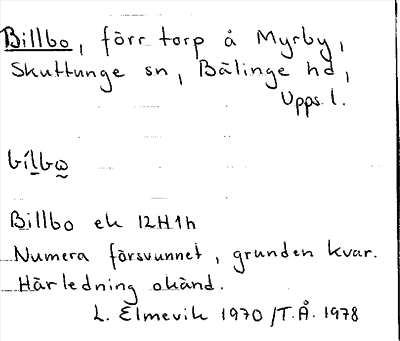 Billbo, förr torp å Myrby,
Skuttunge sn, Bälinge hd,
Upps. l.
bílbω
Billbo ek 12H1h
Numera försvunnet, grunden kvar.
Härledning okänd.
L. Elmevik 1970/T.Å. 1978